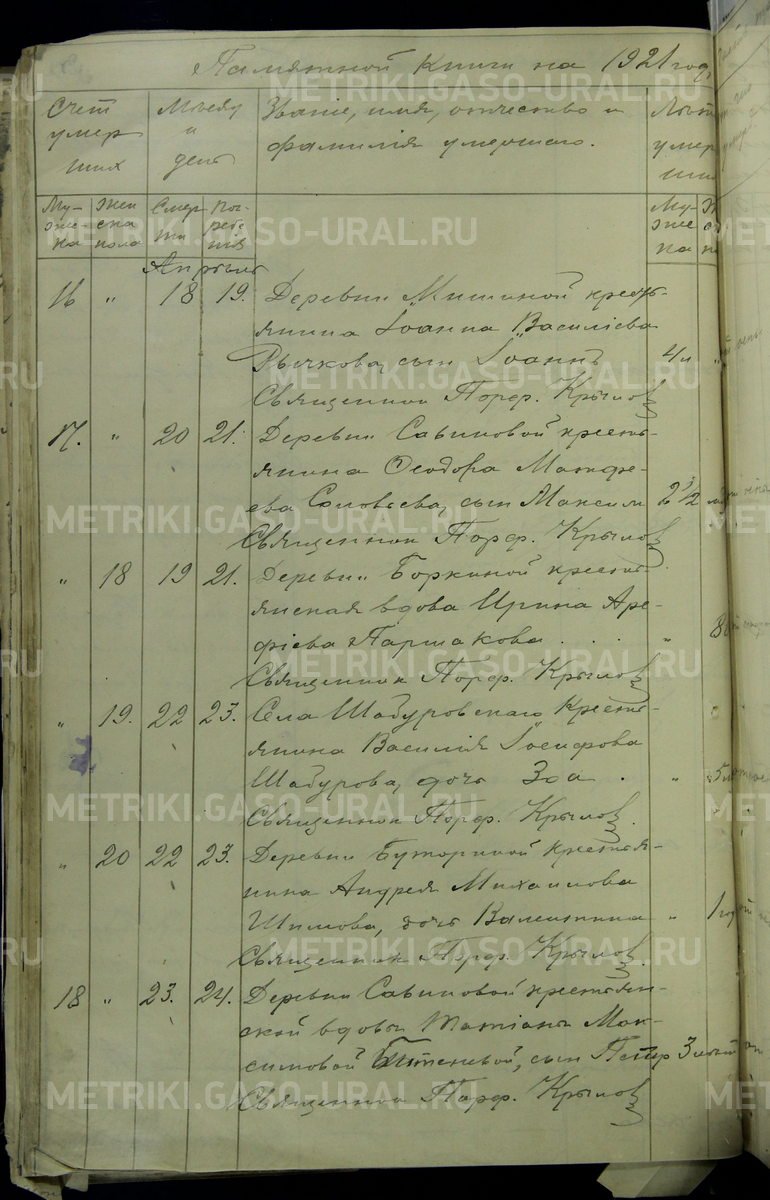 Памятной книги на 1921 год,
Счет умер ших
Месяц и день
Званіе, имя, отчество и
фамилія умершаго.
Лѣта умер ших
Му- жска
Жен ска пола
Смер ти
Пог- ребе нія
Му- жска
Апрѣль
16 " 18 19. Деревни Мишиной кресть-
янина Іоанна Василіева
Рычкова, сын Іоаннъ 4 м
Священник Порф. Крылов
17. " 20 21. Деревни Савиновой кресть-
янина Ѳеодора Матѳе-
ева Соловьева, сын Максим 2 1/2
Священник Порф. Крылов
" 18 19 21. Деревни Боркиной кресть-
янская вдова Ирина Аре-
фіева Паршакова . . . " 8
Священник Порф. Крылов
" 19. 22 23. Села Шабуровскаго кресть-
янина Василія Іосифова
Шабурова, дочь Зоя . " 5
Священник Порф. Крылов.
" 20 22 23. Деревни Буториной крестья-
нина Андрея Михаилова
Шимова, дочь Валентина " 1 год
Священник Порф. Крылов.
18 " 23. 24. Деревни Савиновой крестьян-
ской вдовы Татіаны Мак-
симовой, сын Петр 3
Священник Порф. Крылов
METRIKI.GASO-URAL.RU